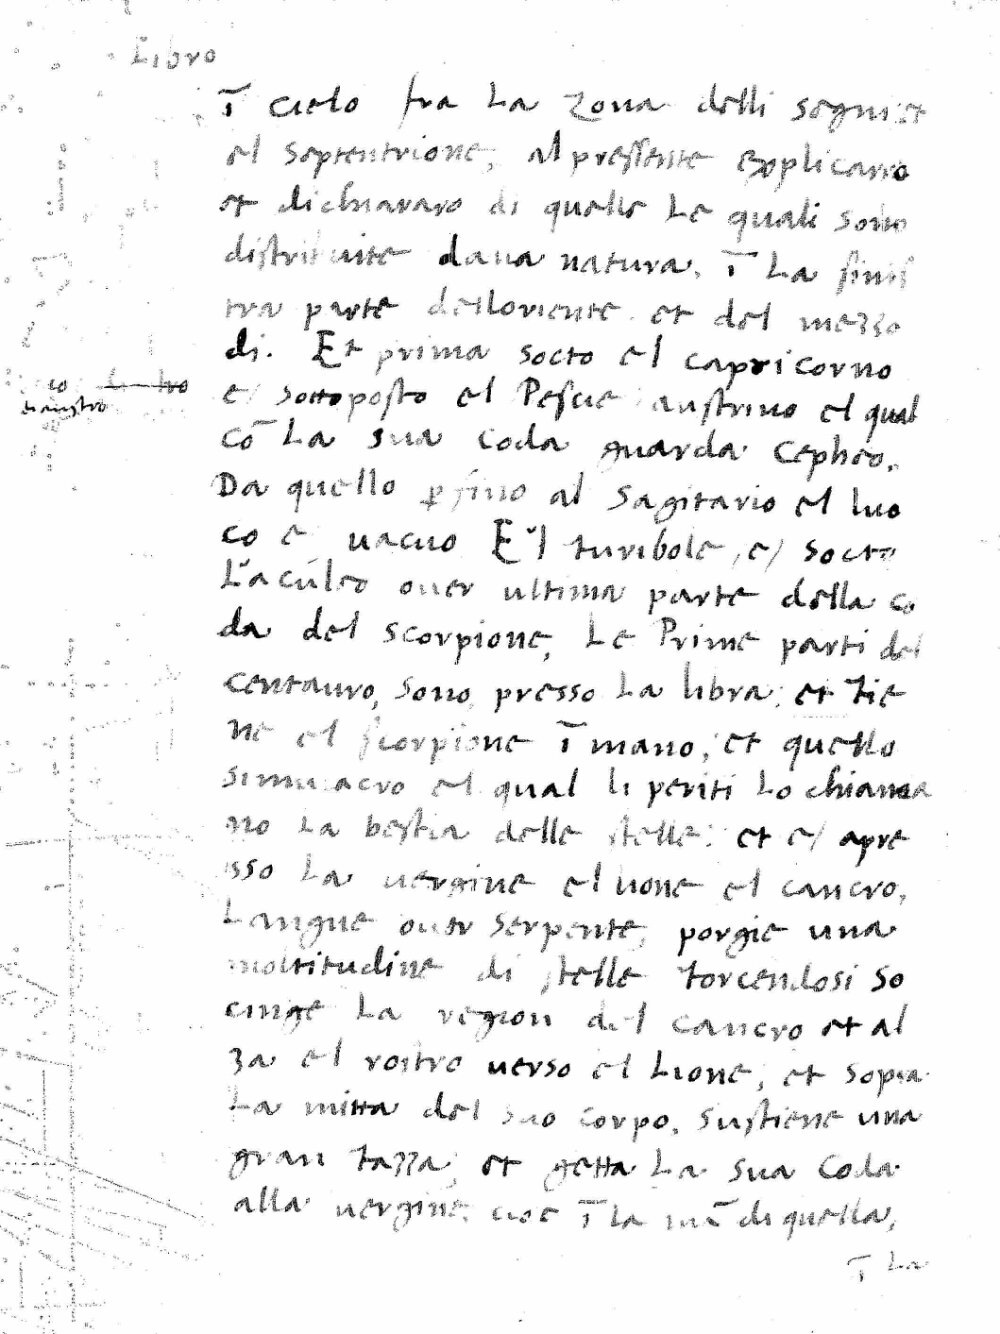 Libro
ī cielo fra La zona delli segni et
el septentrione, al pressente explicaro
et dichiararo di quelle Le quali sono
distribuite dana natura. ī La sinis
tra parte delloriente. et del mezzo
di. Et prima socto el capricorno
e/ sottoposto el Pescie austrino el qual
cō La sua coda guarda Cepheo.
Da quello ꝑ fino al Sagitario el luo
co e uacuo El turibole, e/ socto
L'aculeo ouer ultima parte della co
da del scorpione, Le Prime parti del
centauro, sono presso La libra, et tie
ne el scorpione ī mano, et quello
simulacro el qual li periti Lo chiama
no La bestia delle stelle: et e/ apre
sso La uergine el lione el cancro,
Langue ouer serpente, porgie una
moltitudine di stelle torcendosi so
cinge La region del cancro et al
za el rostro uerso el Lione, et sopra
La mitta del suo corpo. sustiene una
gran tazza, et getta La sua coda
alla uergine, cioe ī la mā di quella,
ī La